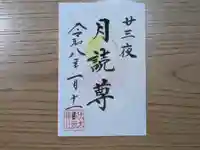 廿三夜
月読尊
令和八年一月十一